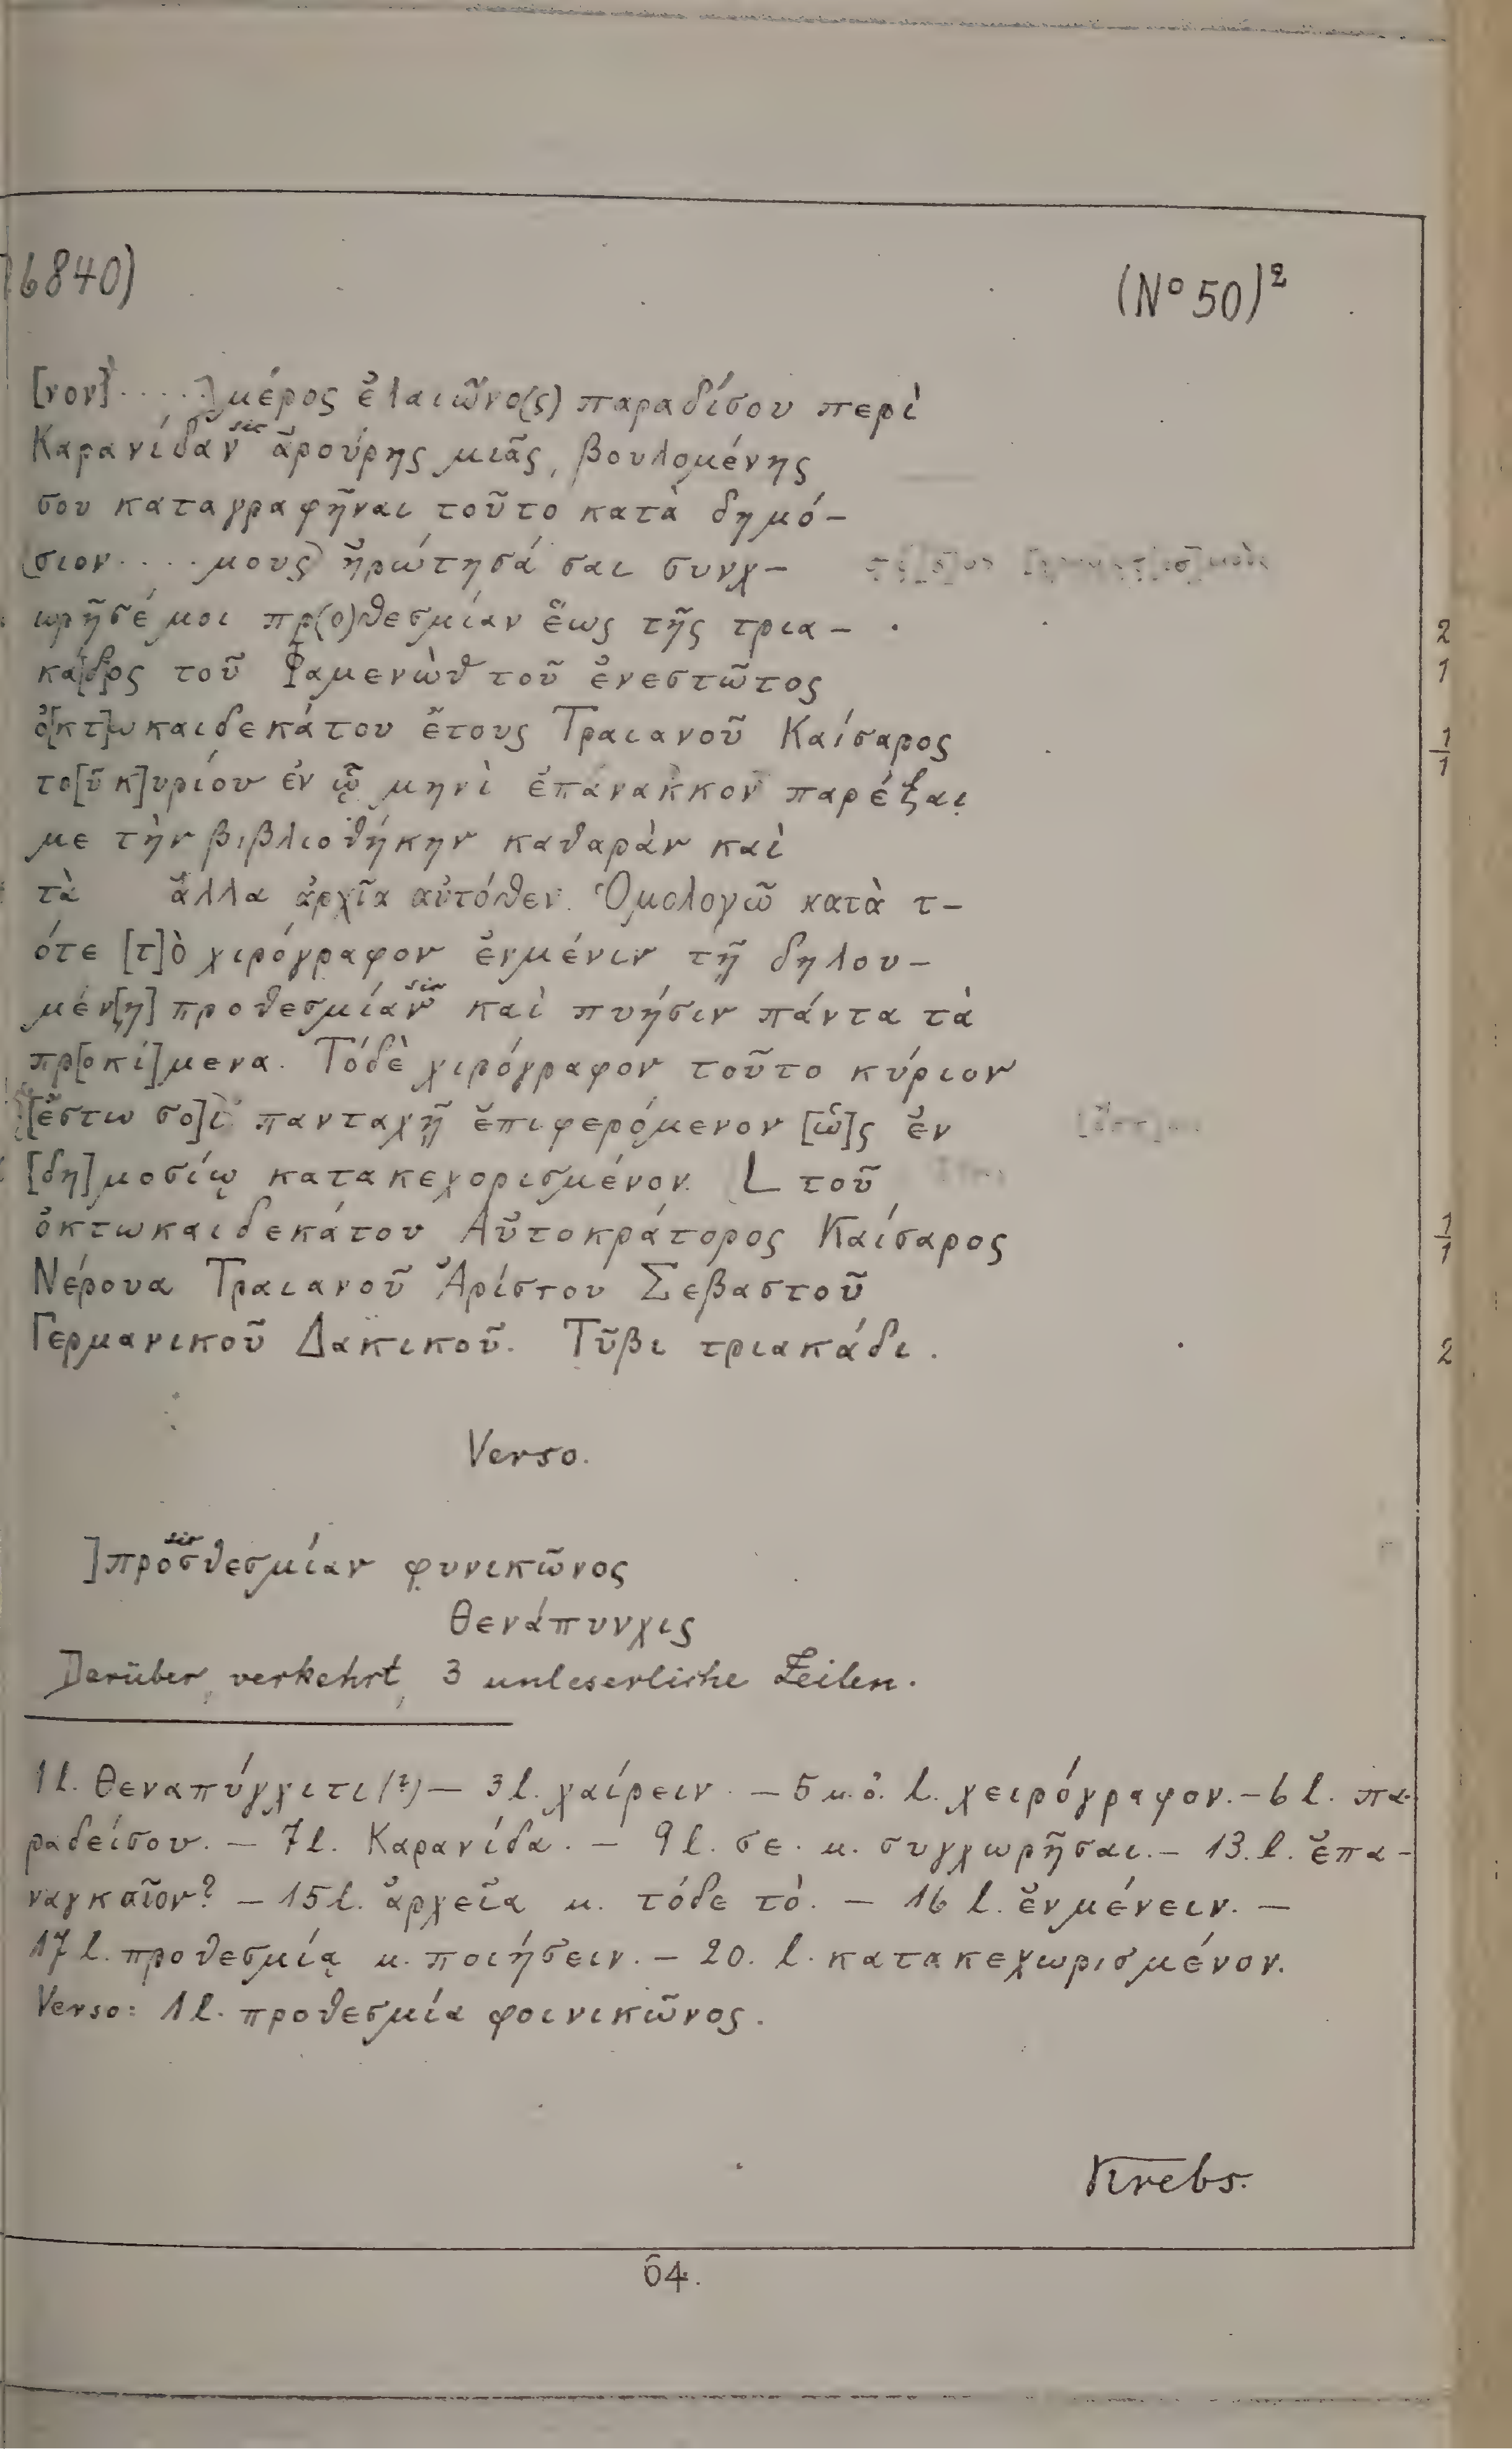 6840)
(No 50)2
[νον] . . . . .] μέρος ἐλαιῶνο(ς) παραδίσου περὶ
Καρανίδαν sic ἀρούρης μιᾶς, βουλομένης
σου καταγραφῆναι τοῦτο κατὰ δημό-
σιον . . . . μους) ἠρώτησά σαι συνχ-
ωρῆσέ μοι πρ(ο)θεσμίαν ἕως τῆς τρια-
2
κά[δ]ος τοῦ Φαμενὼθ τοῦ ἐνεστῶτος
1
ὀ[κτ]ωκαιδεκάτου ἔτους Τραιανοῦ Καίσαρος
1/1
το[ῦ κ]υρίου ἐν ᾧ μηνὶ ἐπάνακκον παρέξαι
με τὴν βιβλιοθήκην καθαρὰν καὶ
τὰ ἄλλα ἀρχῖα αὐτόθεν. Ὁμολογῶ κατὰ τ-
ότε [τ]ὸ χιρόγραφον ἐνμένιν τῇ δηλου-
μέν[η] προθεσμίαν sic καὶ πυήσιν πάντα τὰ
πρ[οκί]μενα. Τόδὲ χιρόγραφον τοῦτο κύριον
[ἔστω σο]ὶ πανταχῇ ἐπιφερόμενον [ὡ]ς ἐν
[δη]μοσίῳ κατακεχορισμένον. L τοῦ
ὀκτωκαιδεκάτου Αὐτοκράτορος Καίσαρος
1/1
Νέρουα Τραιανοῦ Ἀρίστου Σεβαστοῦ
Γερμανικοῦ Δακικοῦ. Τῦβι τριακάδι.
2
Verso.
]προσθεσμίαν sic φυνικῶνος
Θενάπυνχις
Darüber, verkehrt, 3 unleserliche Zeilen.
1 l. Θεναπύγχιτι(?) — 3 l. χαίρειν. — 5 u. ö. l. χειρόγραφον. — 6 l. πα-
ραδείσου. — 7 l. Καρανίδα. — 9 l. σε. u. συγχωρῆσαι. — 13. l. ἐπα-
ναγκαῖον? — 15 l. ἀρχεῖα u. τόδε τὸ. — 16 l. ἐνμένειν. —
17 l. προθεσμίᾳ u. ποιήσειν. — 20. l. κατακεχωρισμένον.
Verso: 1 l. προθεσμία φοινικῶνος.
Krebs.
64.